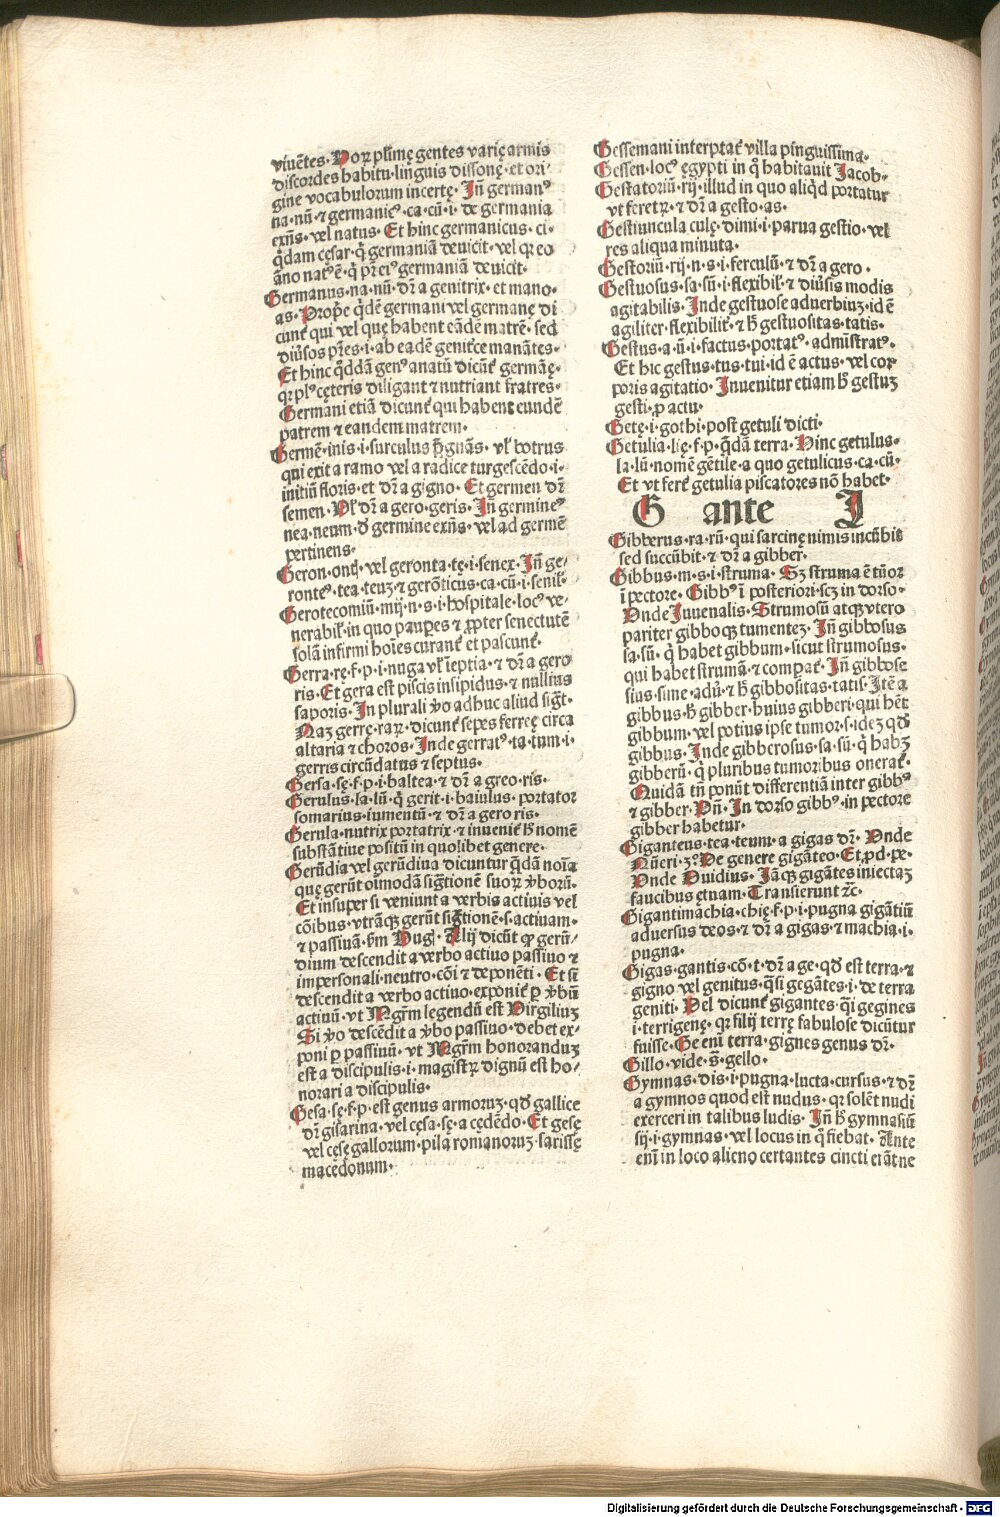 viuētes. Hoꝝ plimę gentes varię armis
discordes habitu linguis dissonę. et ori⸗
gine vocabulorum incertę. Iñ germanꝰ
na.nū. ⁊ germanicꝰ.ca.cū.i. de germania
exñs. vel natus. Et hinc germanicus.ci⸗
q̄dam cęsar. q̄ germaniā deuicit. vel qꝛ eo
āno natꝰ ē. q̄ pr̄ eiꝰ germaniā deuicit.
Germanus.na.nū. dr̄ a genitrix. et mano.
as. Prop̄e q̄dē germani vel germanę di
cunt̄ qui vel quę habent eādē matrē. sed
diūsos pr̄es.i. ab eadē genitᵢce manātes.
Et hinc q̄ddā genꝰ anatū dicūt̄ germāę.
qꝛ plꝰ cęteris diligant ⁊ nutriant fratres.
Germani etiā dicunt̄ qui habent eundē
patrem ⁊ eandem matrem.
Germē.inis.i. surculus p̄gnās. vl̓ botrus
qui exit a ramo vel a radice turgescēdo.i.
initiū floris. et dr̄ a gigno. Et germen dr̄
semen. Vl̓ dr̄ a gero.geris. In germineꝰ
nea.neum. qd̓ germine exñs. vel ad germē
pertinens.
Geron.ontᵢ. vel geronta.tę.i. senex. Iñ ge⸗
ronteꝰ.tea.teuꝫ ⁊ gerōticus.ca.cū.i. senil̓.
Gerotecomiū.mij.n.s.i. hospitale. locꝰ ve⸗
nerabil̓. in quo paupes ⁊ ꝓpter senectutē
solā infirmi hoīes curant̄ et pascunt̄.
Gerra.rę.f.p.i. nuga vl̓ ieptia. ⁊ dr̄ a gero
ris. Et gera est piscis insipidus. ⁊ nullius
saporis. In plurali v̄o adhuc aliud sigt̄.
Naꝫ gerrę.raꝝ. dicunt̄ sepes ferreę circa
altaria ⁊ choros. Inde gerratꝰ.ta.tum.i.
gerris circūdatus ⁊ septus.
Gersa.sę.f.p.i. baltea. ⁊ dr̄ a greo.ris.
Gerulus.la.lū. q̄ gerit.i. baiulus. portator
somarius. iumentū. ⁊ dr̄ a gero ris.
Gerula. nutrix portatrix. ⁊ inuenit̄ h̄ nomē
substātiue positū in quolibet genere.
Gerūdia vel gerūdiua dicuntur q̄dā noīa
quę gerūt oīmodā sigtionē suoꝝ v̄boꝝ.
Et insuper si veniunt a verbis actiuis vel
cōibus. vtrāqꝫ gerūt sigtionē. s. actiuam.
⁊ passiuā. km̄ Hug. Alij dicūt ꝙ gerū⸗
dium descendit a verbo actiuo passiuo ⁊
impersonali. neutro. cōi ⁊ deponēti. Et si
descendit a verbo actiuo. exponit̄ p̱ v̄bū
actiuū. vt Mgr̄m legendū est Virgiliuꝫ
Si v̄o descēdit a v̄bo passiuo. debet ex⸗
poni p̱ passiuū. vt Mgr̄m honoranduꝫ
est a discipulis.i. magistꝝ dignū est ho⸗
norari a discipulis.
Gesa.sę.f.p. est genus armoruꝫ. qd̓ gallice
dr̄ gisarina. vel cęsa.sę. a cędēdo. Et gesę
vel cęsę gallorum. pila romanoruꝫ. sarissę
macedonum.
Gessemani interptat̄ villa pinguissima.
Gessen. locꝰ ęgypti in q̄ habitauit Jacob.
Gestatoriū.rij. illud in quo aliqd̓ portatur
vt feretꝝ. ⁊ dr̄ a gesto.as.
Gestiuncula culę. dimi.i. parua gestio. vel
res aliqua minuta.
Gestoriū.rij.n.s.i. ferculū. ⁊ dr̄ a gero.
Gestuosus.sa.sū.i. flexibil̓. ⁊ diūsis modis
agitabilis. Inde gestuose aduerbiuꝫ. id ē
agiliter. flexibilit̄. ⁊ h̄ gestuositas.tatis.
Gestus.a.ū.i. factus. portatꝰ. admīstratꝰ.
Et hic gestus.tus.tui. id ē actus. vel cor
poris agitatio. Inuenitur etiam h̄ gestuꝫ
gesti. ꝓ actu.
Getę.i. gothi. post getuli dicti.
Getulia.lię.f.p. q̄dā terra. Hinc getulus.
la.lū. nomē gētile. a quo getulicus.ca.cū.
Et vt fert̄ getulia piscatores nō habet.
G ante I
Gibberus.ra.rū. qui sarcinę nimis incūbit
sed succūbit. ⁊ dr̄ a gibber.
Gibbus.m.s.i. struma. Sꝫ struma ē tūor
ī pectore. Gibbꝰ ī posteriori. scꝫ in dorso.
Vnde Juuenalis. Strumosū atqꝫ vtero
pariter gibboqꝫ tumenteꝫ. Iñ gibbosus
sa.sū. q̄ habet gibbum. sicut strumosus.
qui habet strumā. ⁊ compat̄. Iñ gibbose
sius.sime. adū. ⁊ h̄ gibbositas.tatis. Itē a
gibbus. h̄ gibber. huius gibberi. qui hēt
gibbum. vel potius ipse tumor. s. ideꝫ qd̓
gibbus. Inde gibberosus.sa.sū. q̄ habꝫ
gibberū. q̄ pluribus tumoribus onerat̄.
Quidā tn̄ ponūt differentiā inter gibbꝰ
⁊ gibber. Vñ. In dorso gibbꝰ. in pectore
gibber habetur.
Giganteus.tea.teum. a gigas dr̄. Vnde
Nūeri.3º. De genere gigāteo. Et ꝓd.pe.
Vnde Ouidius. Iāqꝫ gigātes iniectaꝫ
faucibus ętnam. Transierunt ⁊c.
Gigantimachia.chię.f.p.i. pugna gigātiū
aduersus deos. ⁊ dr̄ a gigas. ⁊ machia.i.
pugna.
Gigas.gantis.cō.t. dr̄ a ge. qd̓ est terra. ⁊
gigno vel genitus. q̄si gegātes.i. de terra
geniti. Vel dicunt̄ gigantes. q̄i gegines
.i. terrigenę. qꝛ filij terrę fabulose dicūtur
fuisse. Ge enī terra. gignes genus dr̄.
Gillo. vide. S. gello.
Gymnas.dis.i. pugna. lucta. cursus. ⁊ dr̄
a gymnos quod est nudus. qꝛ solēt nudi
exerceri in talibus ludis. Iñ h̄ gymnasiū
sij.i. gymnas. vel locus in q̄ fiebat. Ante
enī in loco alieno certantes cincti erāt ne
Digitalisierung gefördert durch die Deutsche Forschungsgemeinschaft - DFG